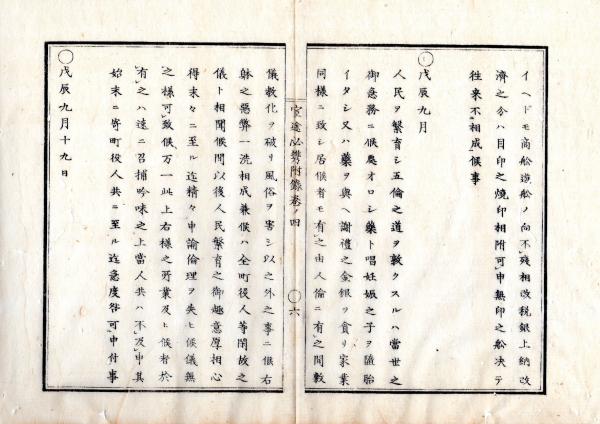 イヘドモ高舩造舩ノ向不殘相改税銀上納改
濟之分ハ目印之燒印相附可申無印之舩决テ
往来不相成候事
戊辰九月
人民ヲ繁育シ五倫之道ヲ敦クスルハ當世之
御急務ニ候處オロシ藥ト唱妊娠之子ヲ墮胎
イタシ又ハ藥ヲ與ヘ謝禮之金銀ヲ貪リ家業
同様ニ致シ居候者モ有之由人倫ニ有之間敷
官途必携附録巻ノ四
六
儀敎化ヲ破リ風俗ヲ害シ以之外之事ニ候右
躰之惡弊一洗相成兼候ハ全町役人等閑故之
儀ト相聞候間以後人民繁育之御趣意厚相心
得末々ニ至ル迄精々申論倫理ヲ失ヒ候儀無
之様可致候万一此上右様之所業及ヒ候者於
有之ハ速ニ召捕吟味之上當人共ハ不及申其
始末ニ寄町役人共ニ至ル迄急度咎可申付事
戊辰九月十九日